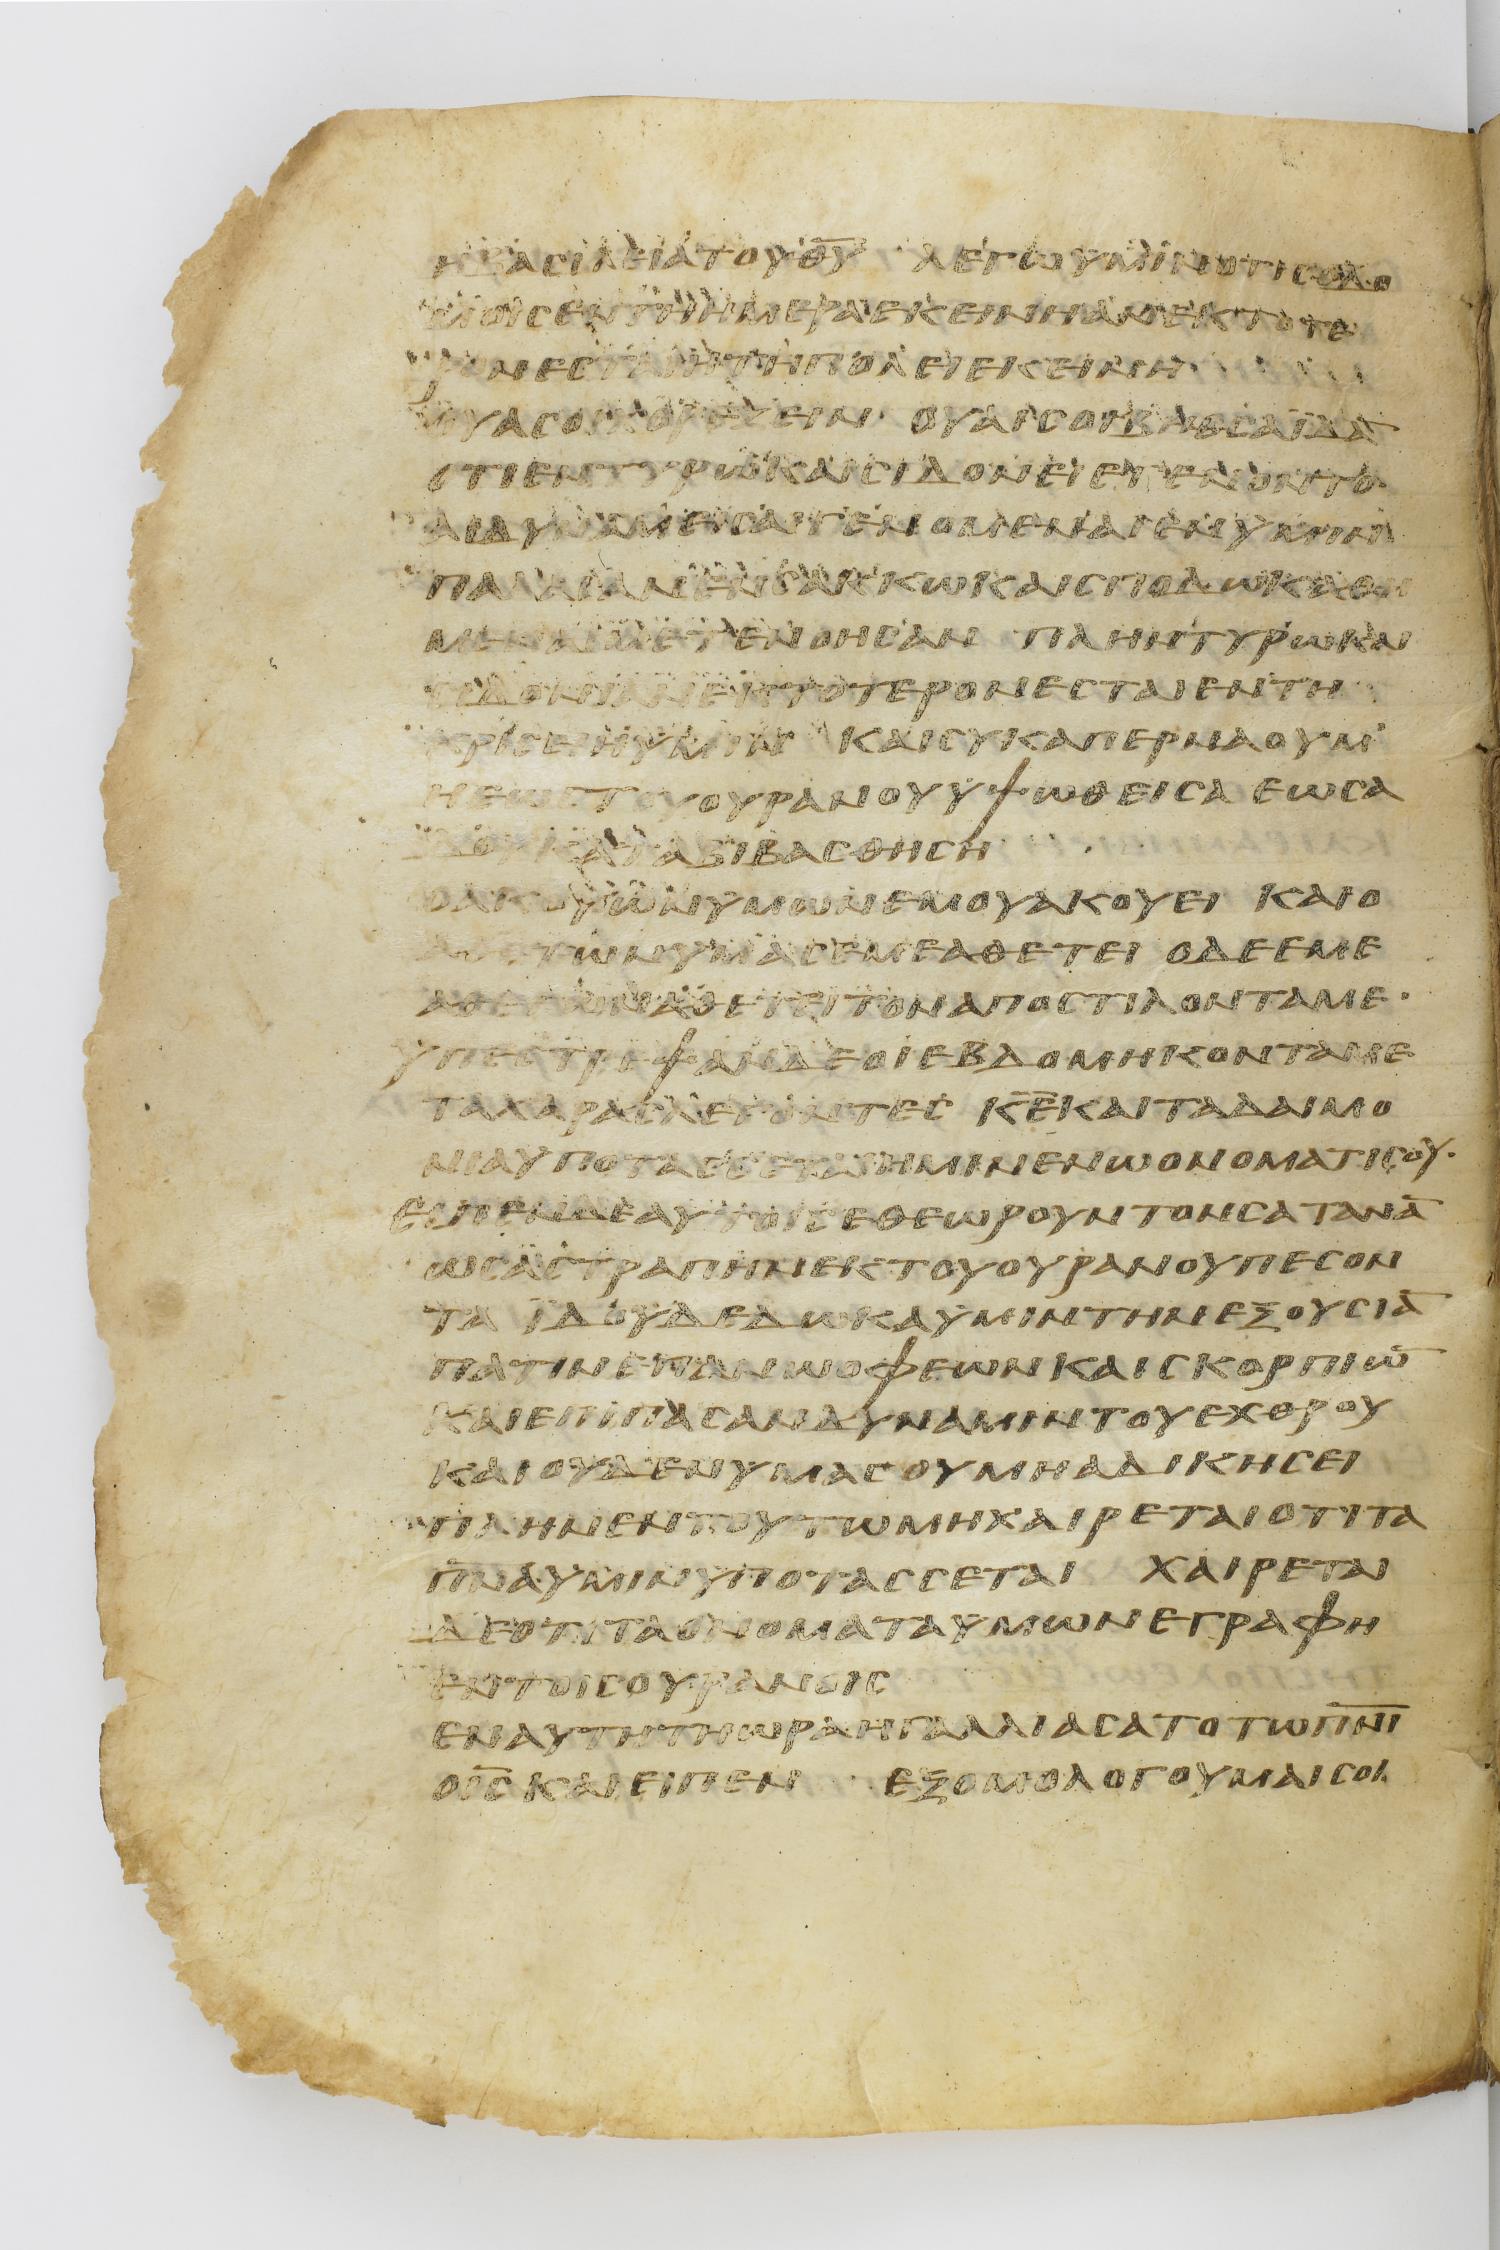 ηβασιλειατουθ̅υ̅ λεγωυμινοτισοδο
μοισεντηημεραεκεινηανεκτοτε
ρονεσταιητηπολειεκεινη
ουαισοιχοραζειν ουαισοιβηθσαιδα
οτιεντυρωκαισιδονειεγενοντο
αιδυναμεισαιγενομεναιενυμιν
παλαιανενσακκωκαισποδωκαθη
μεναιμετενοησαν πληντυρωκαι
σιδονιανεκτοτερονεσταιεντη
κρισειηυμιν καισυκαπερναουμ
ηεωστουουρανουυψωθεισαεωσα
δουκαταβιβασθηση
οακουωνυμωνεμουακουει καιο
αθετωνυμασεμεαθετει οδεεμε
αθετωναθετειτοναποστιλονταμε
υπεστρεψανδεοιεβδομηκονταμε
ταχαραςλεγοντες κ̅ε̅καιταδαιμο
νιαυποτασσεταιημινενωονοματισου
ειπενδεαυτοισεθεωρουντονσατανα̅
ωσαστραπηνεκτουουρανουπεσον
τα ιδουδεδωκαυμιντηνεξουσια̅
πατινεπανωοφεωνκαισκορπιω̅
καιεπιπασανδυναμιντουεχθρου
καιουδενυμασουμηαδικησει
πληνεντουτωμηχαιρεταιοτιτα
π̅ν̅αυμινυποτασσεται χαιρεται
δεοτιταονοματαυμωνεγραφη
εντοισουρανοις
εναυτητηωραηγαλλιασατοτωπ̅ν̅ι̅
οι̅ς̅καιειπεν εξομολογουμαισοι